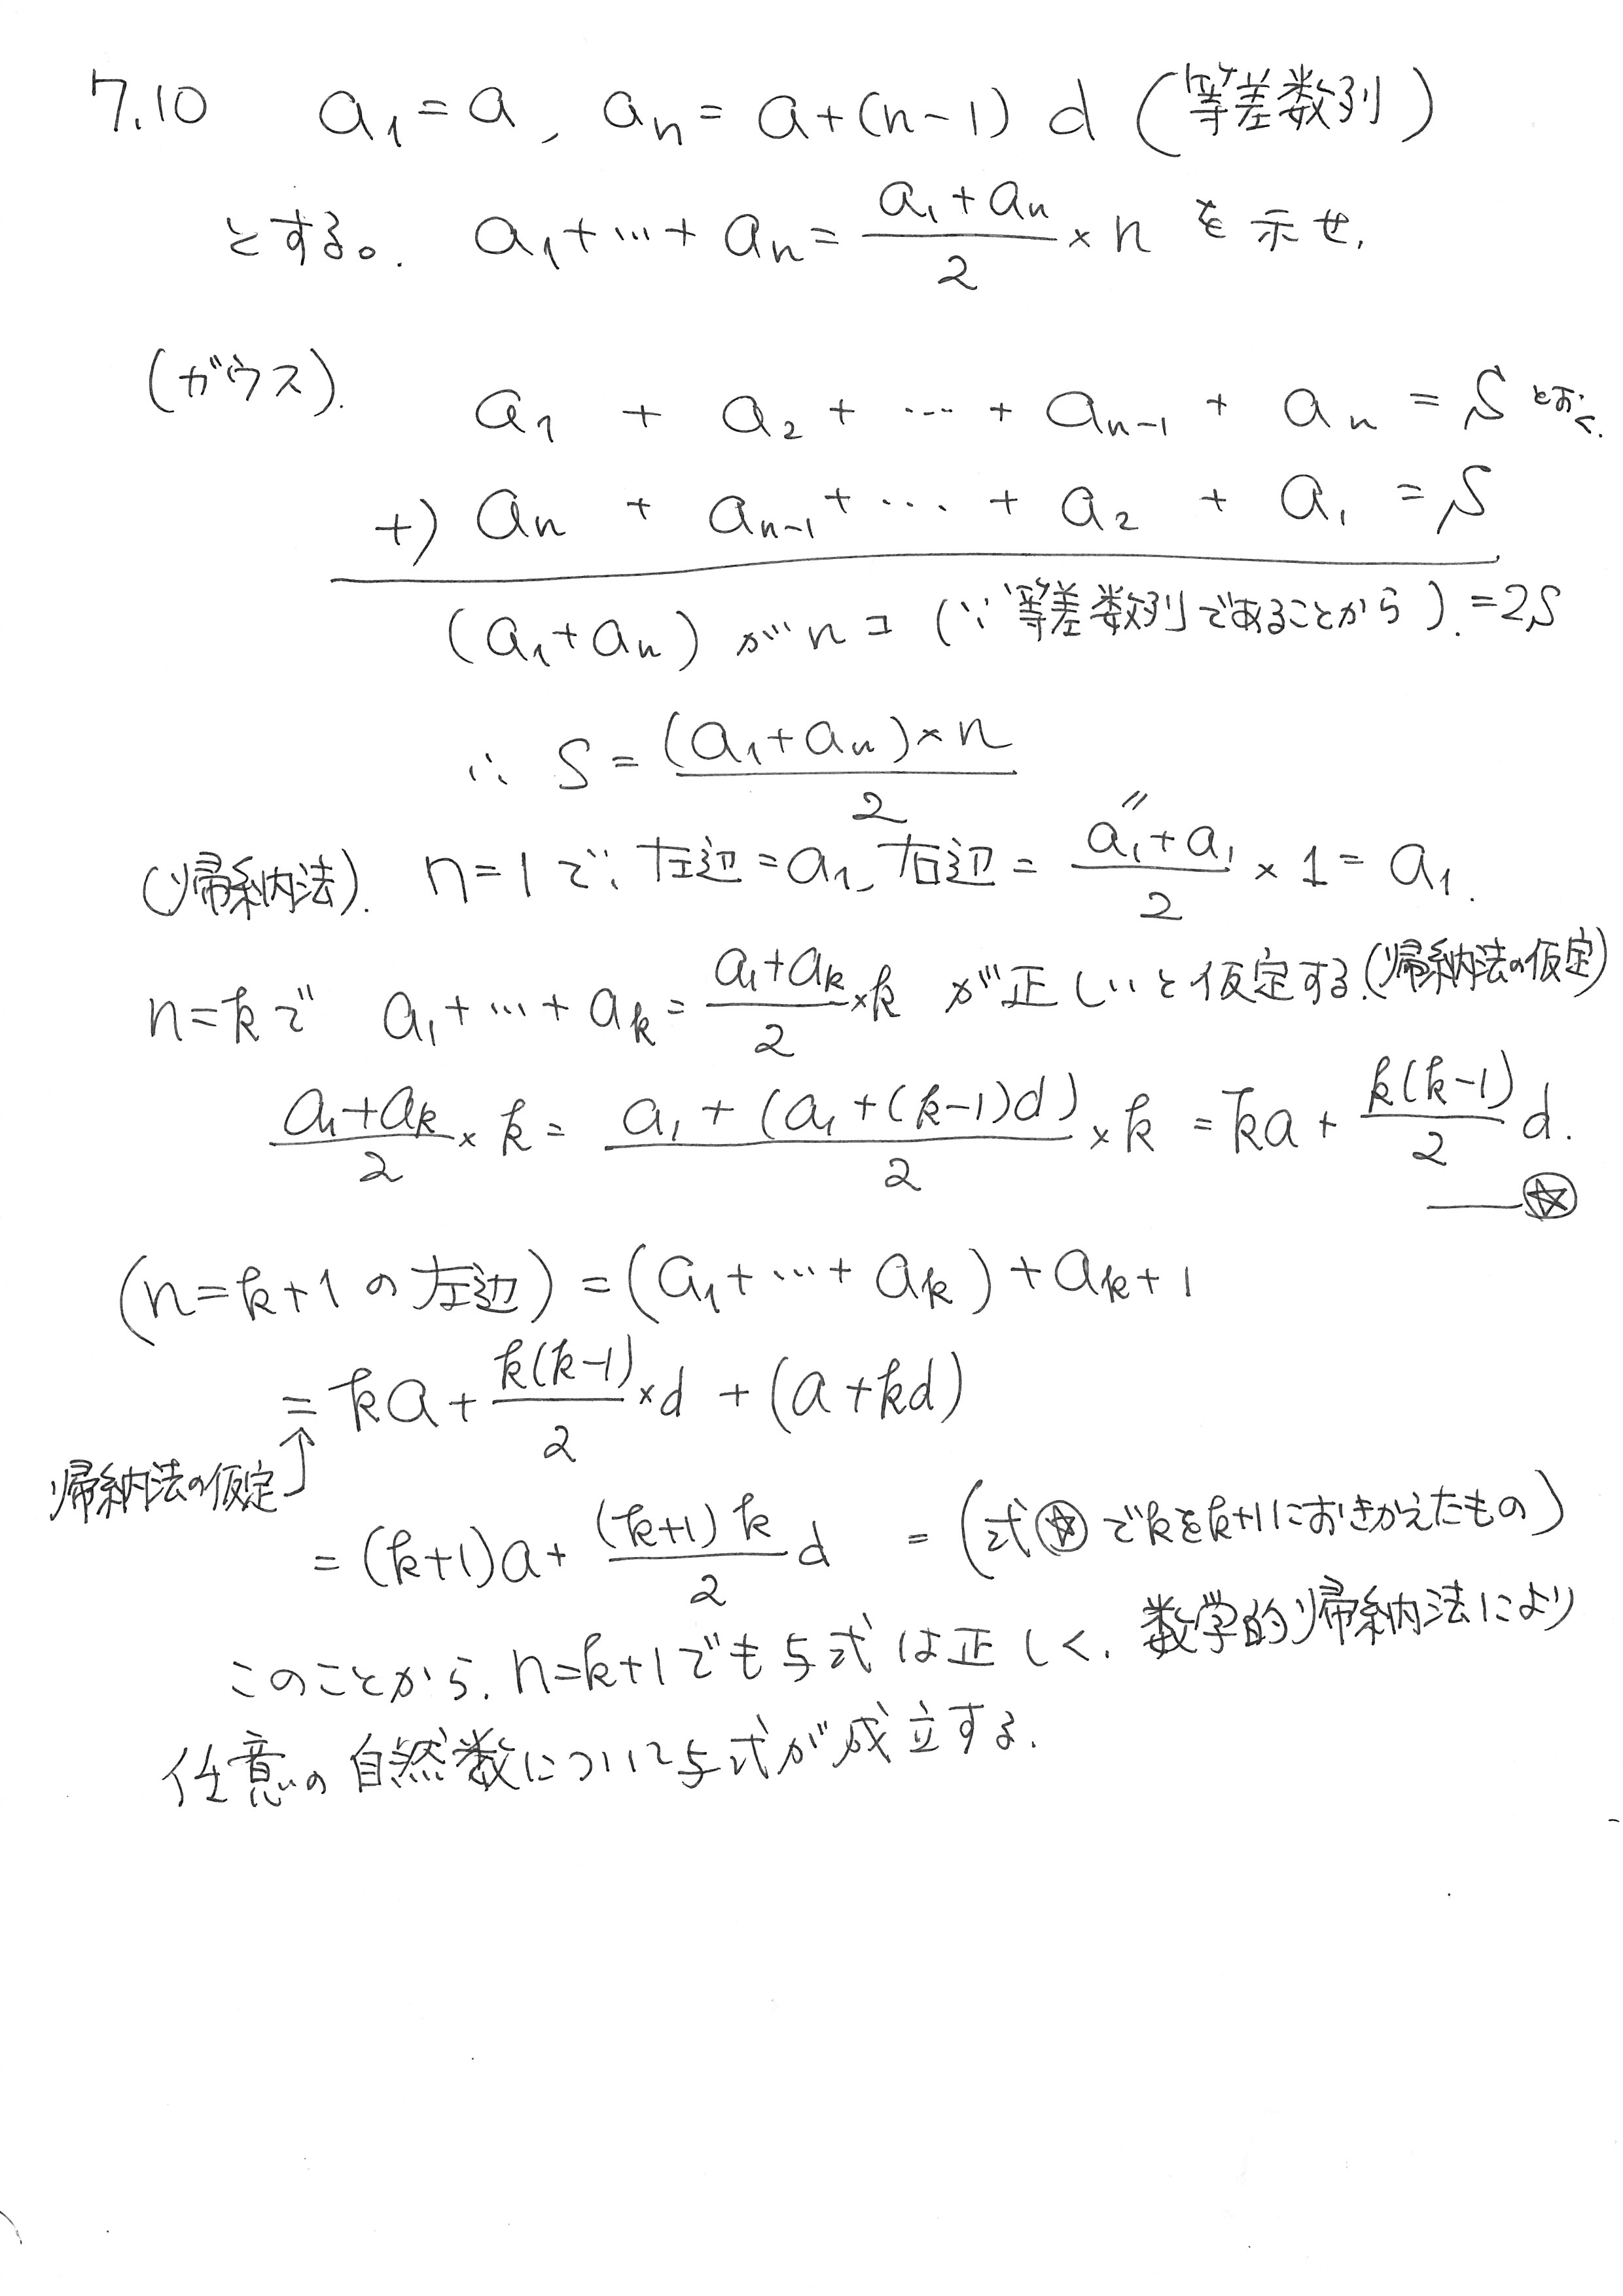 7.10 a₁ = a, aₙ = a+(n-1) d (等差数列)
とする。. a₁+…+ aₙ = (a₁ + aₙ)/2 × n を示せ.
(ガウス). a₁ + a₂ + … + aₙ₋₁ + aₙ = S とおく.
+) aₙ + aₙ₋₁ + … + a₂ + a₁ = S
(a₁+aₙ) が n コ (∵ 等差数列であることから). = 2S
∴ S = (a₁+aₙ)×n/2 〃
(帰納法). n=1で; 左辺=a₁, 右辺 = (a₁+a₁)/2 × 1 = a₁.
n=kで a₁+…+ aₖ = (a₁+aₖ)/2 ×k が正しいと仮定する.(帰納法の仮定)
(a₁+aₖ)/2 × k = (a₁ + (a₁+(k-1)d))/2 × k = ka + k(k-1)/2 d.
—— ☆
(n=k+1 の左辺) = (a₁+…+ aₖ) + aₖ₊₁
= ka + k(k-1)/2 ×d + (a+kd)
帰納法の仮定↑
= (k+1)a + (k+1)k/2 d = (式☆でkをk+1におきかえたもの)
このことから. n=k+1でも与式は正しく. 数学的帰納法により
任意の自然数について与式が成立する.